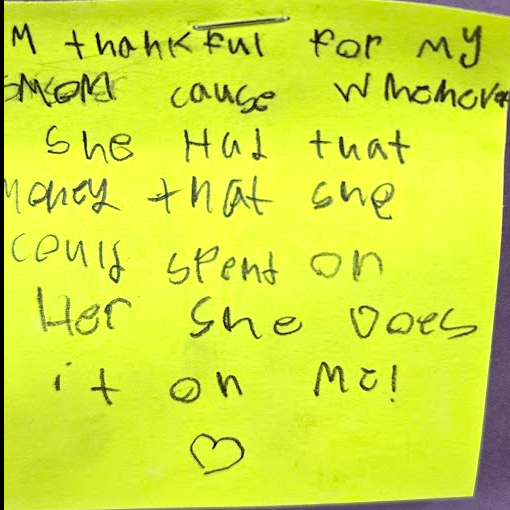 M thankful for my
MOM cause Whenever
She Had that
Money that she
could spent on
Her She Does
it on Me!